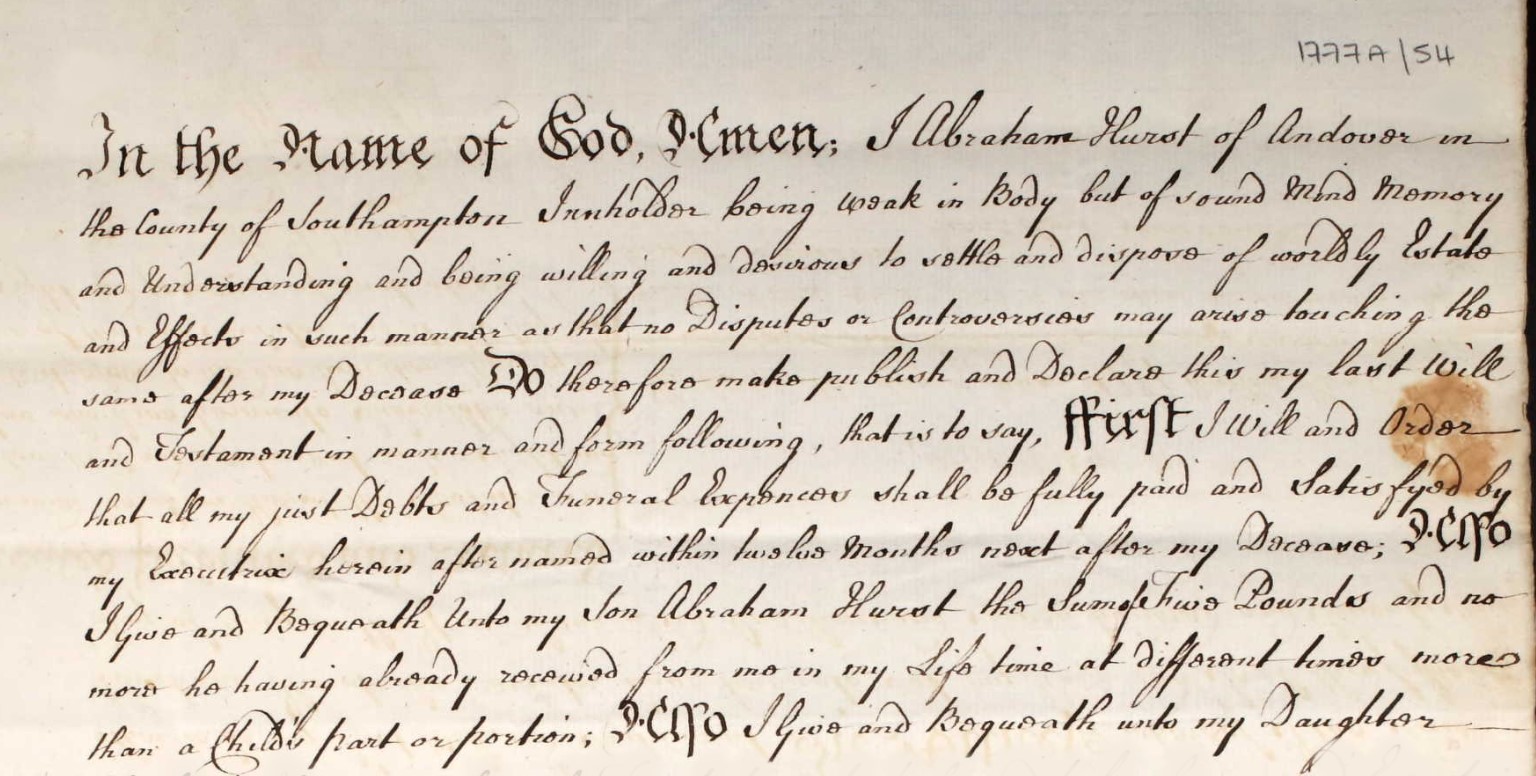 1777A/54
In the Name of God, Amen; I Abraham Hurst of Andover in
the County of Southampton Innholder being weak in Body but of sound Mind Memory
and Understanding and being willing and desirous to settle and dispose of worldly Estate
and Effects in such manner as that no Disputes or Controversies may arise touching the
same after my Decease Do therefore make publish and Declare this my last Will
and Testament in manner and form following, that is to say, ffirst I Will and Order
that all my just Debts and Funeral Expences shall be fully paid and Satisfyed by
my Executrix herein after named within twelve Months next after my Decease; Also
I Give and Bequeath Unto my Son Abraham Hurst the Sum of Five Pounds and no
more he having already received from me in my Life time at different times more
than a Child's part or portion; Also I Give and Bequeath unto my Daughter